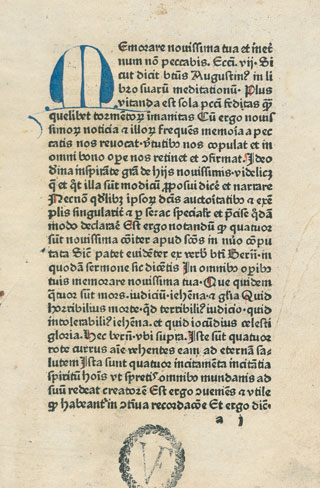 Memorare nouissima tua et inet̄
num nō peccabis. Eccī. vij. Si
cut dicit btūs Augustinꝰ in li
bro suarū meditationū. Plus
vitanda est sola pctī feditas ꝙ̄
quelibet tormentoꝝ īmanitas Cū ergo nouis
simoꝝ noticia ⁊ illoꝝ frequēs memoīa a pec
catis nos reuocat. v̄tutibꝰ nos copulat et in
omni bono oꝑe nos retinet et ꝯfirmat. Ideo
diīna inspirāte grā de hijs nouissimis videlicꝫ
ꝗ et ꝗ̄t illa sūt modicū ꝓposui dicē et narrare
Necnō qdlibꝫ ipsoꝝ dc̄is auctoītatibꝰ ⁊ exē
plis singularit̄ ⁊ ꝑ se ac specialīt ⁊ p̄cise ꝗdā
modo declararē Est ergo notandū ꝙ quatuor
sūt nouissima cōiter apud scōs in nūo cōpu
tata Sic̄ patet euidēter ex verbꝭ bt̄i Bern̄. in
quodā sermone sic dicētis In omnibꝰ oꝑibꝰ
tuis memorare nouissima tua. Que quidem
qͣtuor sūt mors. iudiciū. iehēna. ⁊ gl̄ia Quid
horribilius morte. ꝗd terribiliꝰ iudicio. quid
intolerabiliꝰ iehēna. et quid iocūdius celesti
gloria. Hec bern̄. vbi supra. Iste sūt quatuor
rote currus aīe vehentes eam ad eternā sa-
lutem Ista sunt quatuor incitamēta incitātia
spiritū hoīs vt spretis omnibꝰ mundanis ad
suū redeat creatorē Est ergo ꝯueniēs ⁊ vtile
ꝙ habeant̄ in ꝯtīua recordacōe Et ergo diē.
a j